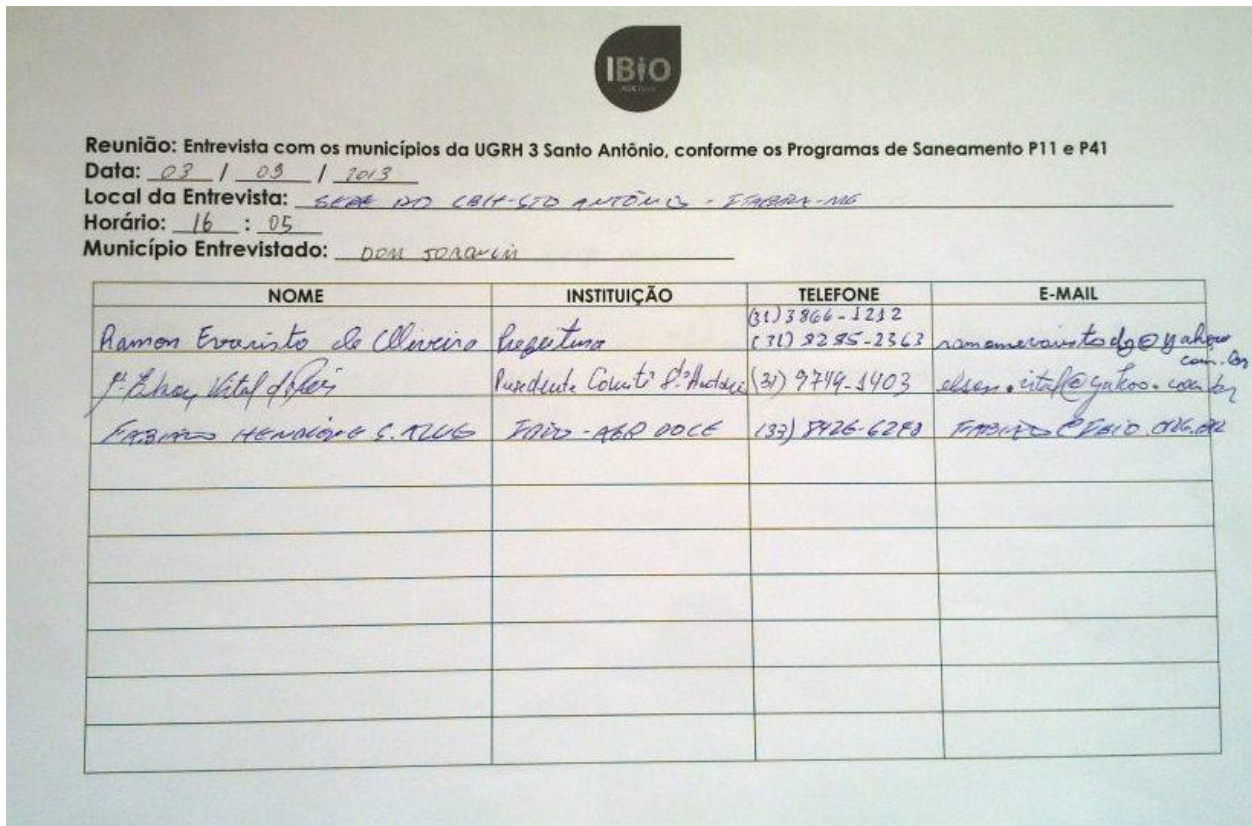 IBiO
AGB Doce
Reunião: Entrevista com os municípios da UGRH 3 Santo Antônio, conforme os Programas de Saneamento P11 e P41
Data: 03 / 09 / 2013
Local da Entrevista: SEDE DO CBH-STO ANTÔNIO - ITABIRA-MG
Horário: 16 : 05
Município Entrevistado: DOM JOAQUIM
NOME INSTITUIÇÃO TELEFONE E-MAIL
(31) 3866-1212
Ramon Evaristo de Oliveira Prefeitura (31) 8285-2363 ramonevaristodg@yahoo
com.br
Vital Presidente Comitê Sto Antônio (31) 9749-1403 .vital@yahoo.com.br
FABIANO HENRIQUE S. ALVES IBIO - AGB DOCE (33) 8426-6290 FABIANO@IBIO.ORG.BR